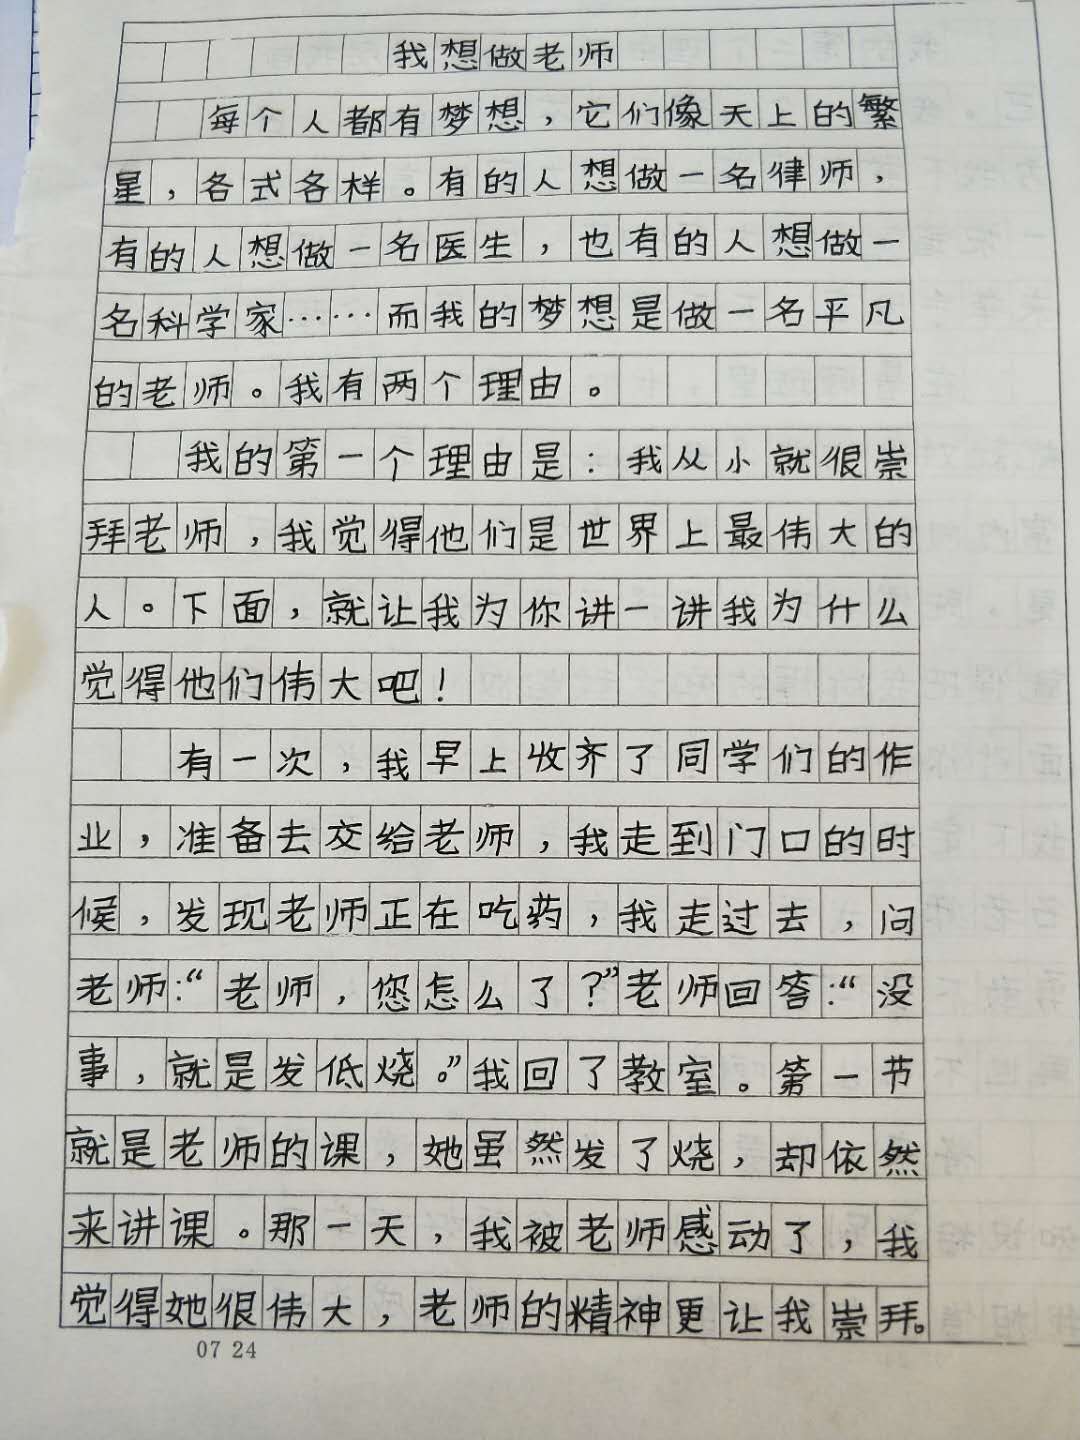 我想做老师
每个人都有梦想，它们像天上的繁
星，各式各样。有的人想做一名律师，
有的人想做一名医生，也有的人想做一
名科学家……而我的梦想是做一名平凡
的老师。我有两个理由。
我的第一个理由是：我从小就很崇
拜老师，我觉得他们是世界上最伟大的
人。下面，就让我为你讲一讲我为什么
觉得他们伟大吧！
有一次，我早上收齐了同学们的作
业，准备去交给老师，我走到门口的时
候，发现老师正在吃药，我走过去，问
老师：“老师，您怎么了？”老师回答：“没
事，就是发低烧。”我回了教室。第一节
就是老师的课，她虽然发了烧，却依然
来讲课。那一天，我被老师感动了，我
觉得她很伟大，老师的精神更让我崇拜。
07 24